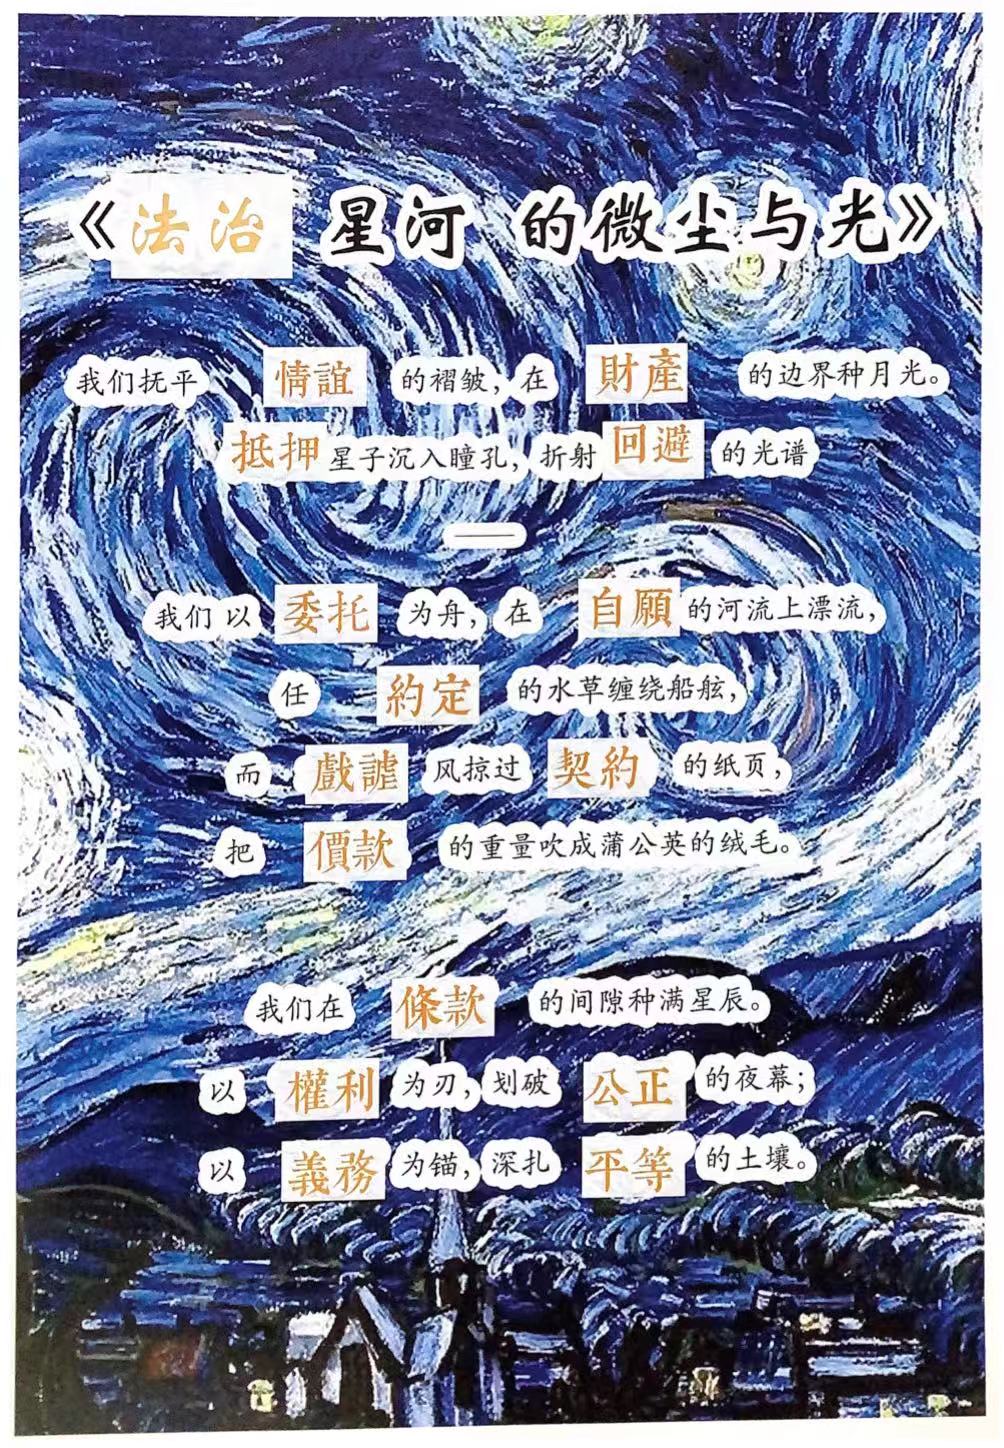 《法治 星河 的微尘与光》
我们抚平 情誼 的褶皱，在 財產 的边界种月光。
抵押 星子沉入瞳孔，折射 回避 的光谱
——
我们 以 委托 为舟，在 自願 的河流上漂流，
任 約定 的水草缠绕船舷，
而 戲謔 风掠过 契約 的纸页，
把 價款 的重量吹成蒲公英的绒毛。
我们在 條款 的间隙种满星辰。
以 權利 为刃，划破 公正 的夜幕；
以 義務 为锚，深扎 平等 的土壤。